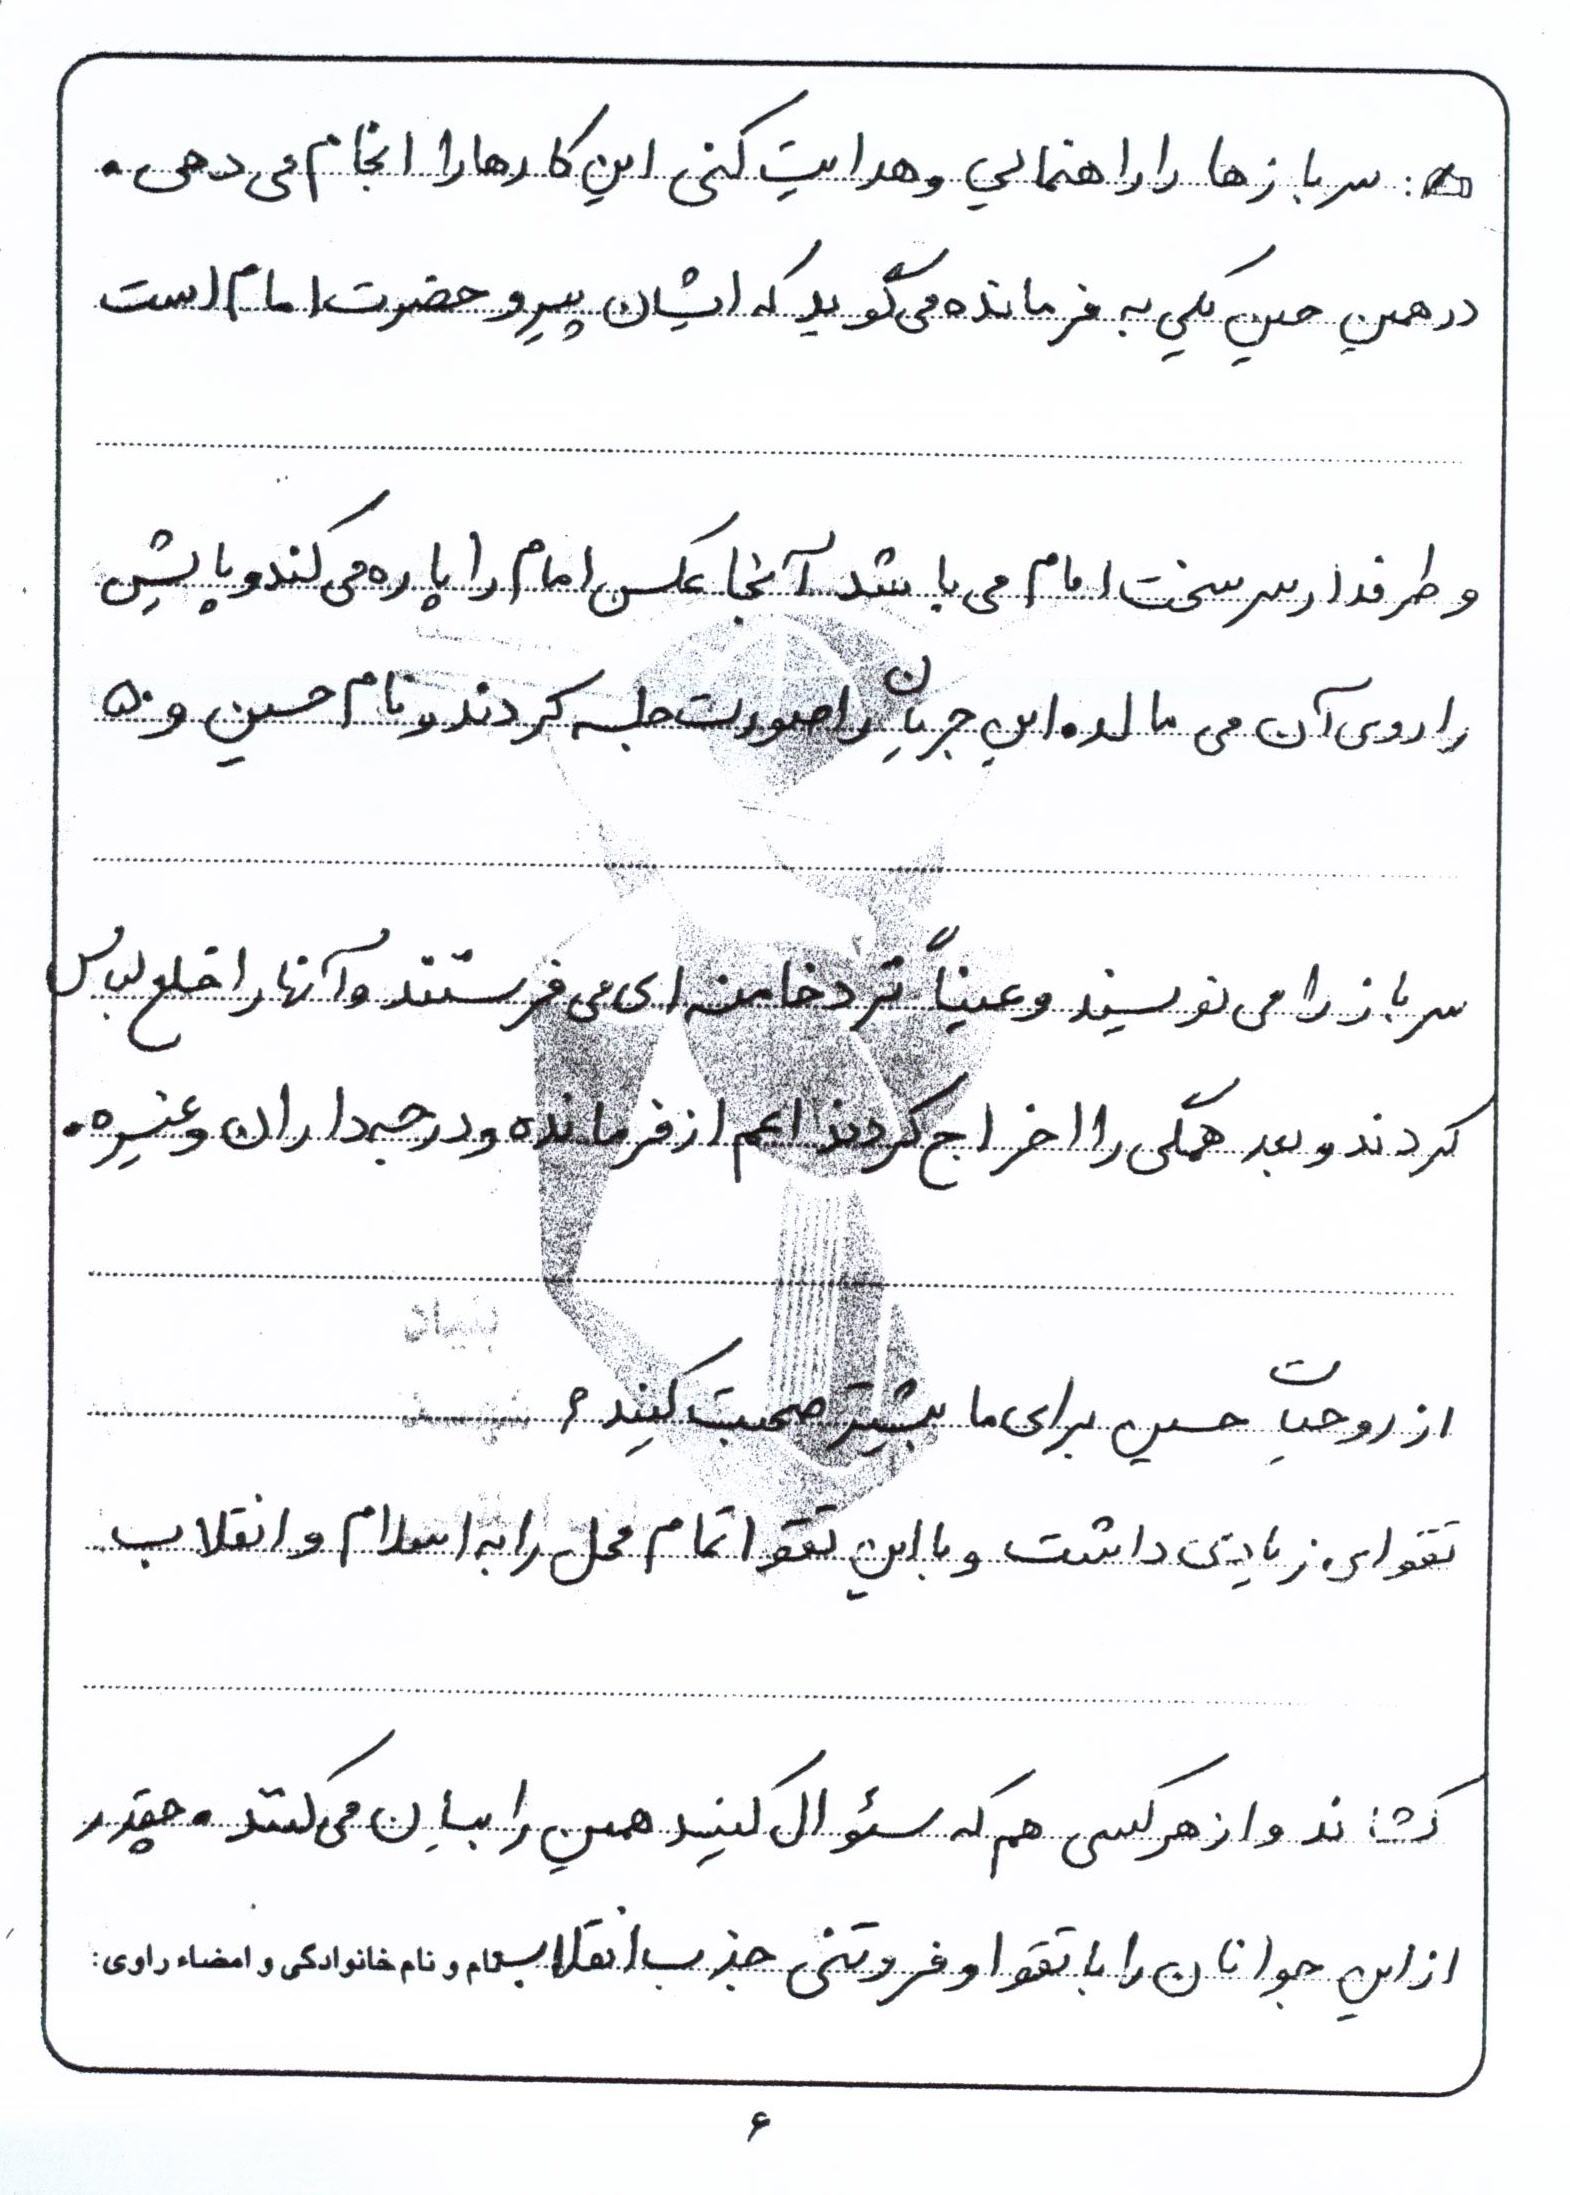 سربازها را راهنمایی و هدایت کنی این کارها را انجام می دهی.
در همین حین یکی به فرمانده می گوید که ایشان پیرو حضرت امام است
و طرفدار سرسخت امام می باشد آنجا عکس امام را پاره می کند و پایش
را روی آن می مالد. این جریان را صورت جلسه کردند و نام حسین و ۵۰
سرباز را می نویسند و عیناً نزد خامنه ای می فرستند و آنها را خلع لباس
کردند و بعد همگی را اخراج کردند اعم از فرمانده و درجه داران و غیره.
بنیاد
از روحیات حسین برای ما بیشتر صحبت کنید؟
تقوای زیادی داشت و با این تقوا تمام محل را به اسلام و انقلاب
کشاند و از هر کسی هم که سئوال کنید همین را بیان می کنند. چقدر
از این جوانان را با تقوا و فروتنی جذب انقلاب
نام و نام خانوادگی و امضاء راوی:
۶